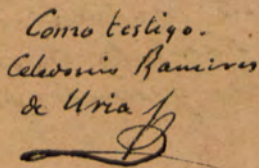 Como testigo.
Celedonio Ramires
de Uria